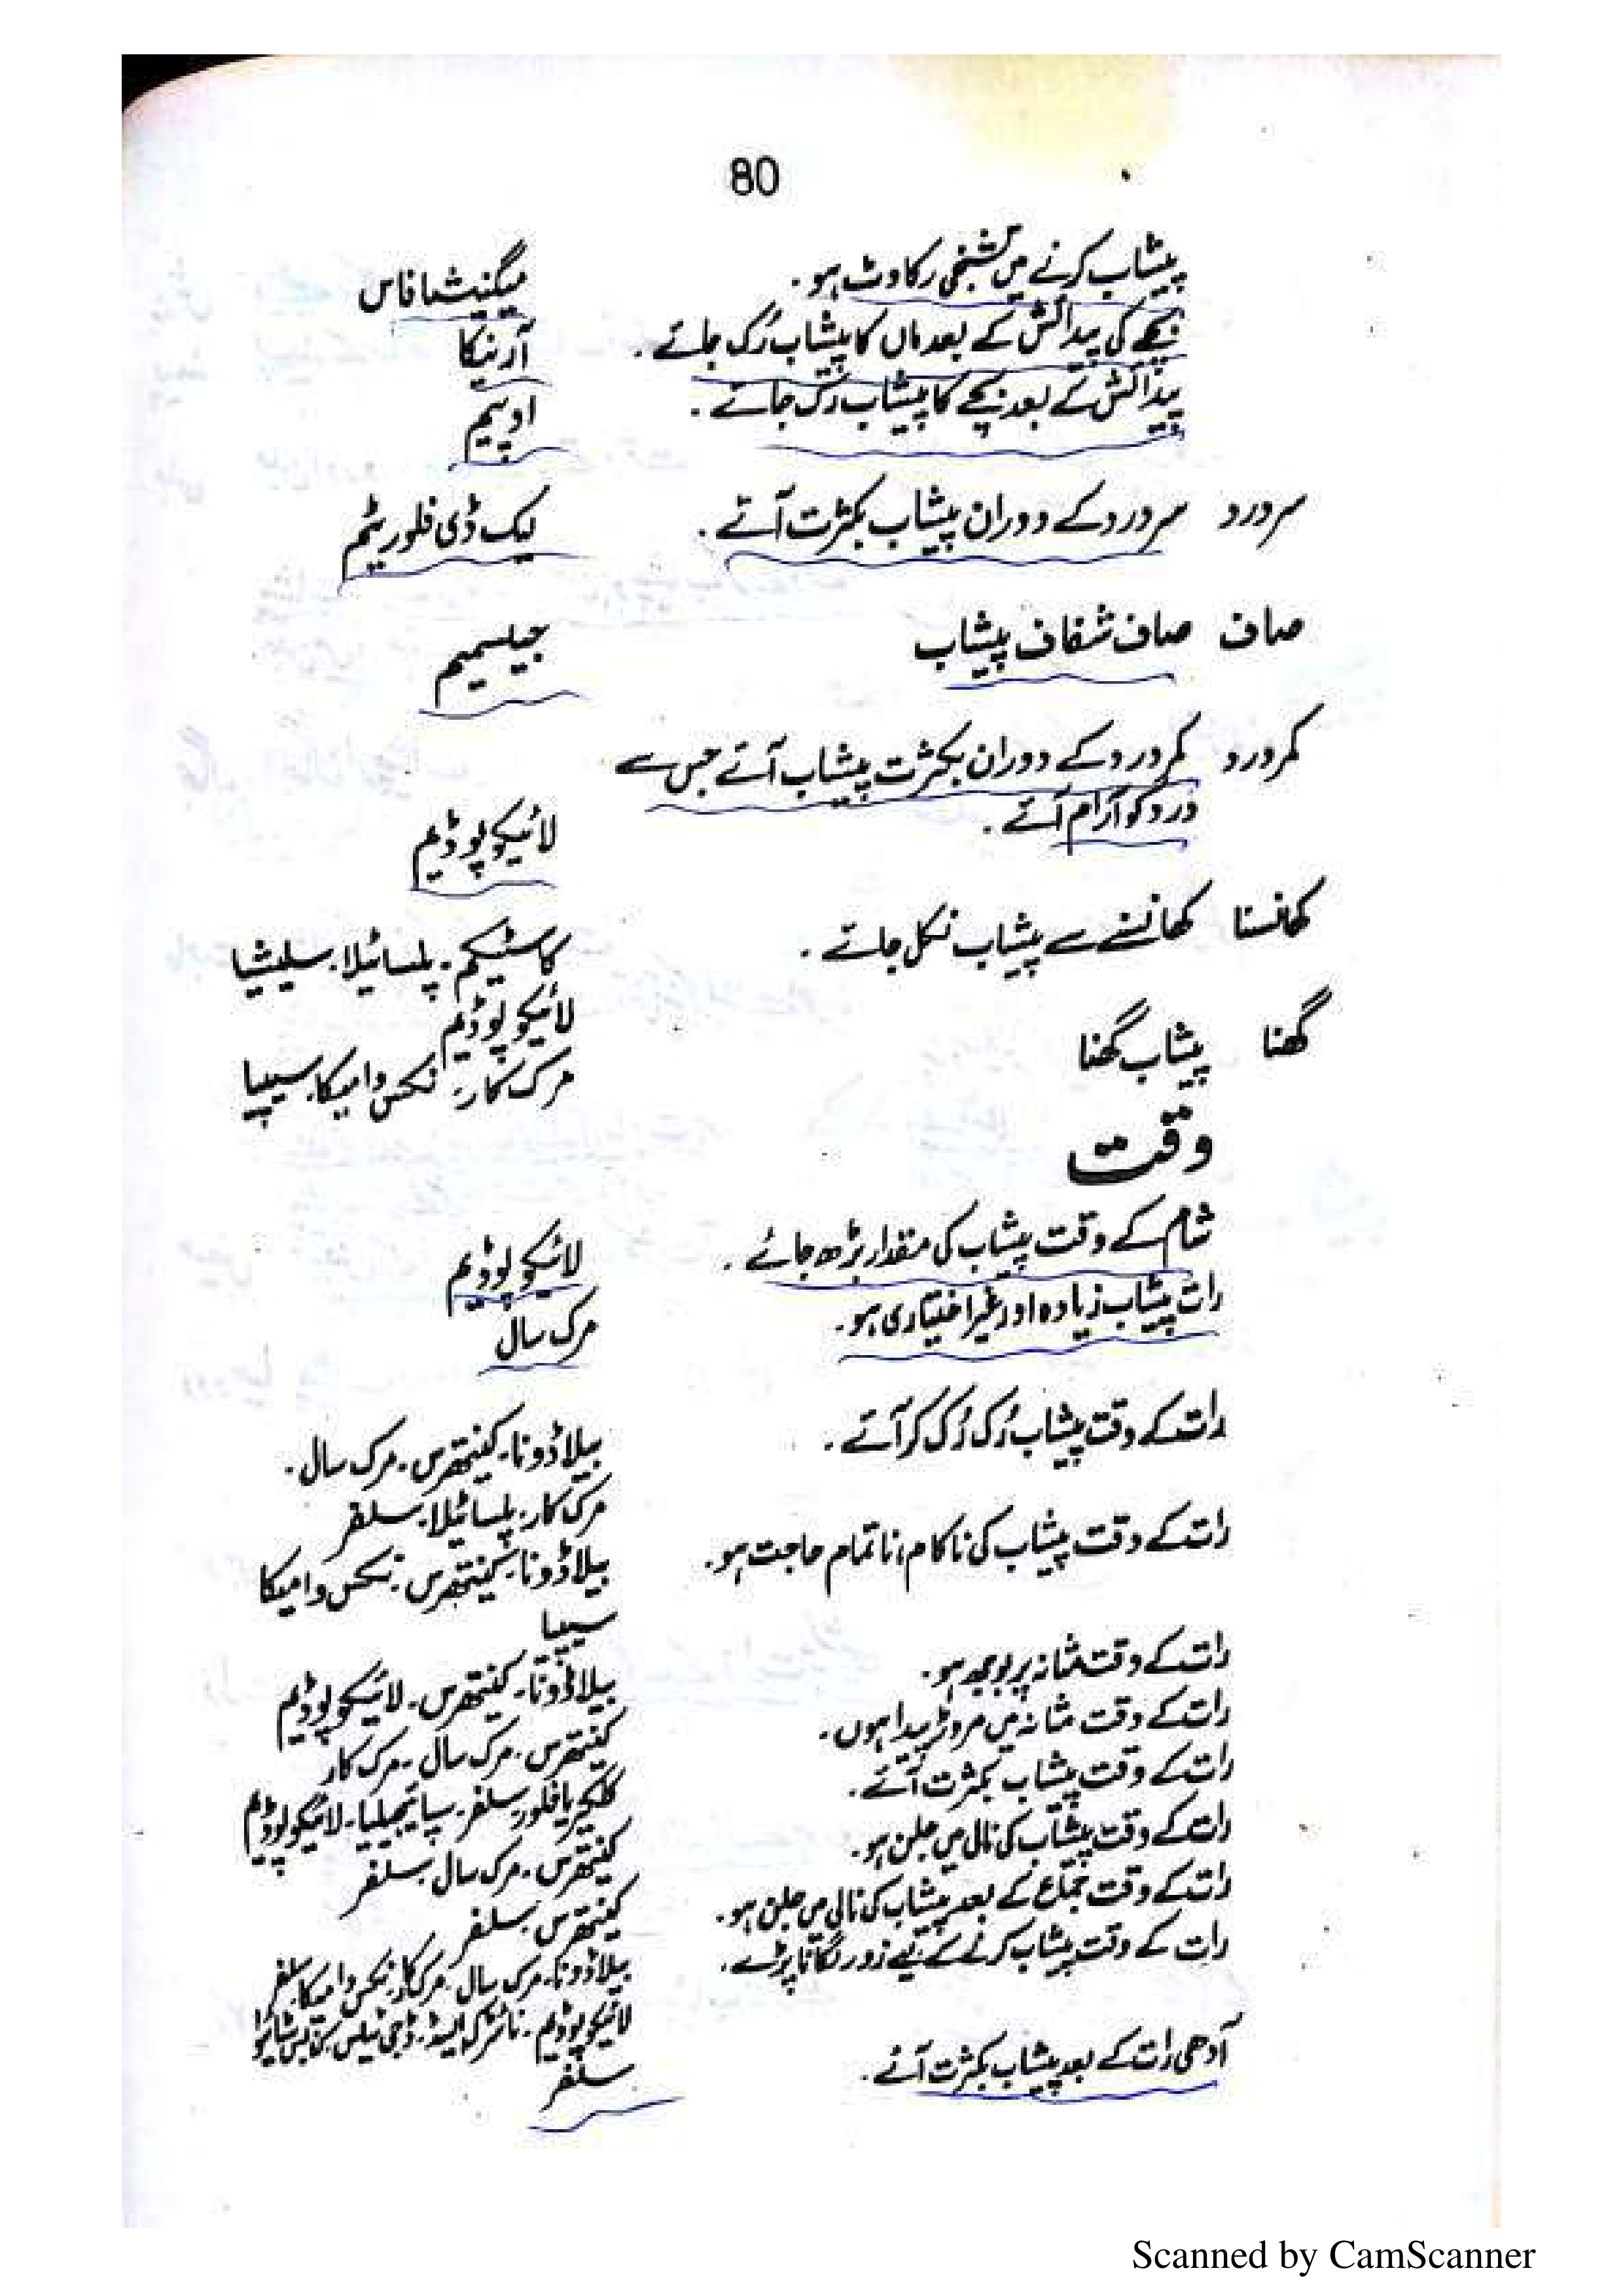 80
پیشاب کرنے میں تشنجی رکاوٹ ہو۔ میگنیشیا فاس
بچے کی پیدائش کے بعد ماں کا پیشاب رُک جائے۔ آرنیکا
پیدائش کے بعد بچے کا پیشاب رُک جائے۔ اوپیم
سردرد سردرد کے دوران پیشاب بکثرت آئے۔ لیک ڈی فلوریٹم
صاف صاف شفاف پیشاب جیلسمیم
کمردرد کمردرد کے دوران بکثرت پیشاب آئے جس سے
درد کو آرام آئے۔ لائیکوپوڈیم
کھانسنا کھانسنے سے پیشاب نکل جائے۔ کاسٹیکم۔ پلساٹیلا۔ سلیشیا
لائیکوپوڈیم
گھنا پیشاب گھنا مرک کار۔ نکس وامیکا۔ سیپیا
وقت
شام کے وقت پیشاب کی مقدار بڑھ جائے۔ لائیکوپوڈیم
رات پیشاب زیادہ اور غیر اختیاری ہو۔ مرک سال
رات کے وقت پیشاب رُک رُک کر آئے۔ بیلاڈونا۔ کینتھرس۔ مرک سال۔
مرک کار۔ پلساٹیلا۔ سلفر
رات کے وقت پیشاب کی ناکام، ناتمام حاجت ہو۔ بیلاڈونا۔ کینتھرس۔ نکس وامیکا
سیپیا
رات کے وقت مثانہ پر بوجھ ہو۔ بیلاڈونا۔ کینتھرس۔ لائیکوپوڈیم
رات کے وقت مثانہ میں مروڑ پیدا ہوں۔ کینتھرس۔ مرک سال۔ مرک کار
رات کے وقت پیشاب بکثرت آئے۔ کلکیریا فلور۔ سلفر۔ سپائیجیلیا۔ لائیکوپوڈیم
رات کے وقت پیشاب کی نالی میں جلن ہو۔ کینتھرس۔ مرک سال۔ سلفر
رات کے وقت جماع کے بعد پیشاب کی نالی میں جلن ہو۔ کینتھرس۔ سلفر
رات کے وقت پیشاب کرنے کے لیے زور لگانا پڑے۔ بیلاڈونا۔ مرک سال۔ مرک کار۔ نکس وامیکا۔ سلفر
لائیکوپوڈیم۔ نائٹرک ایسڈ۔ ڈجی ٹیلس۔
آدھی رات کے بعد پیشاب بکثرت آئے۔ سلفر
Scanned by CamScanner